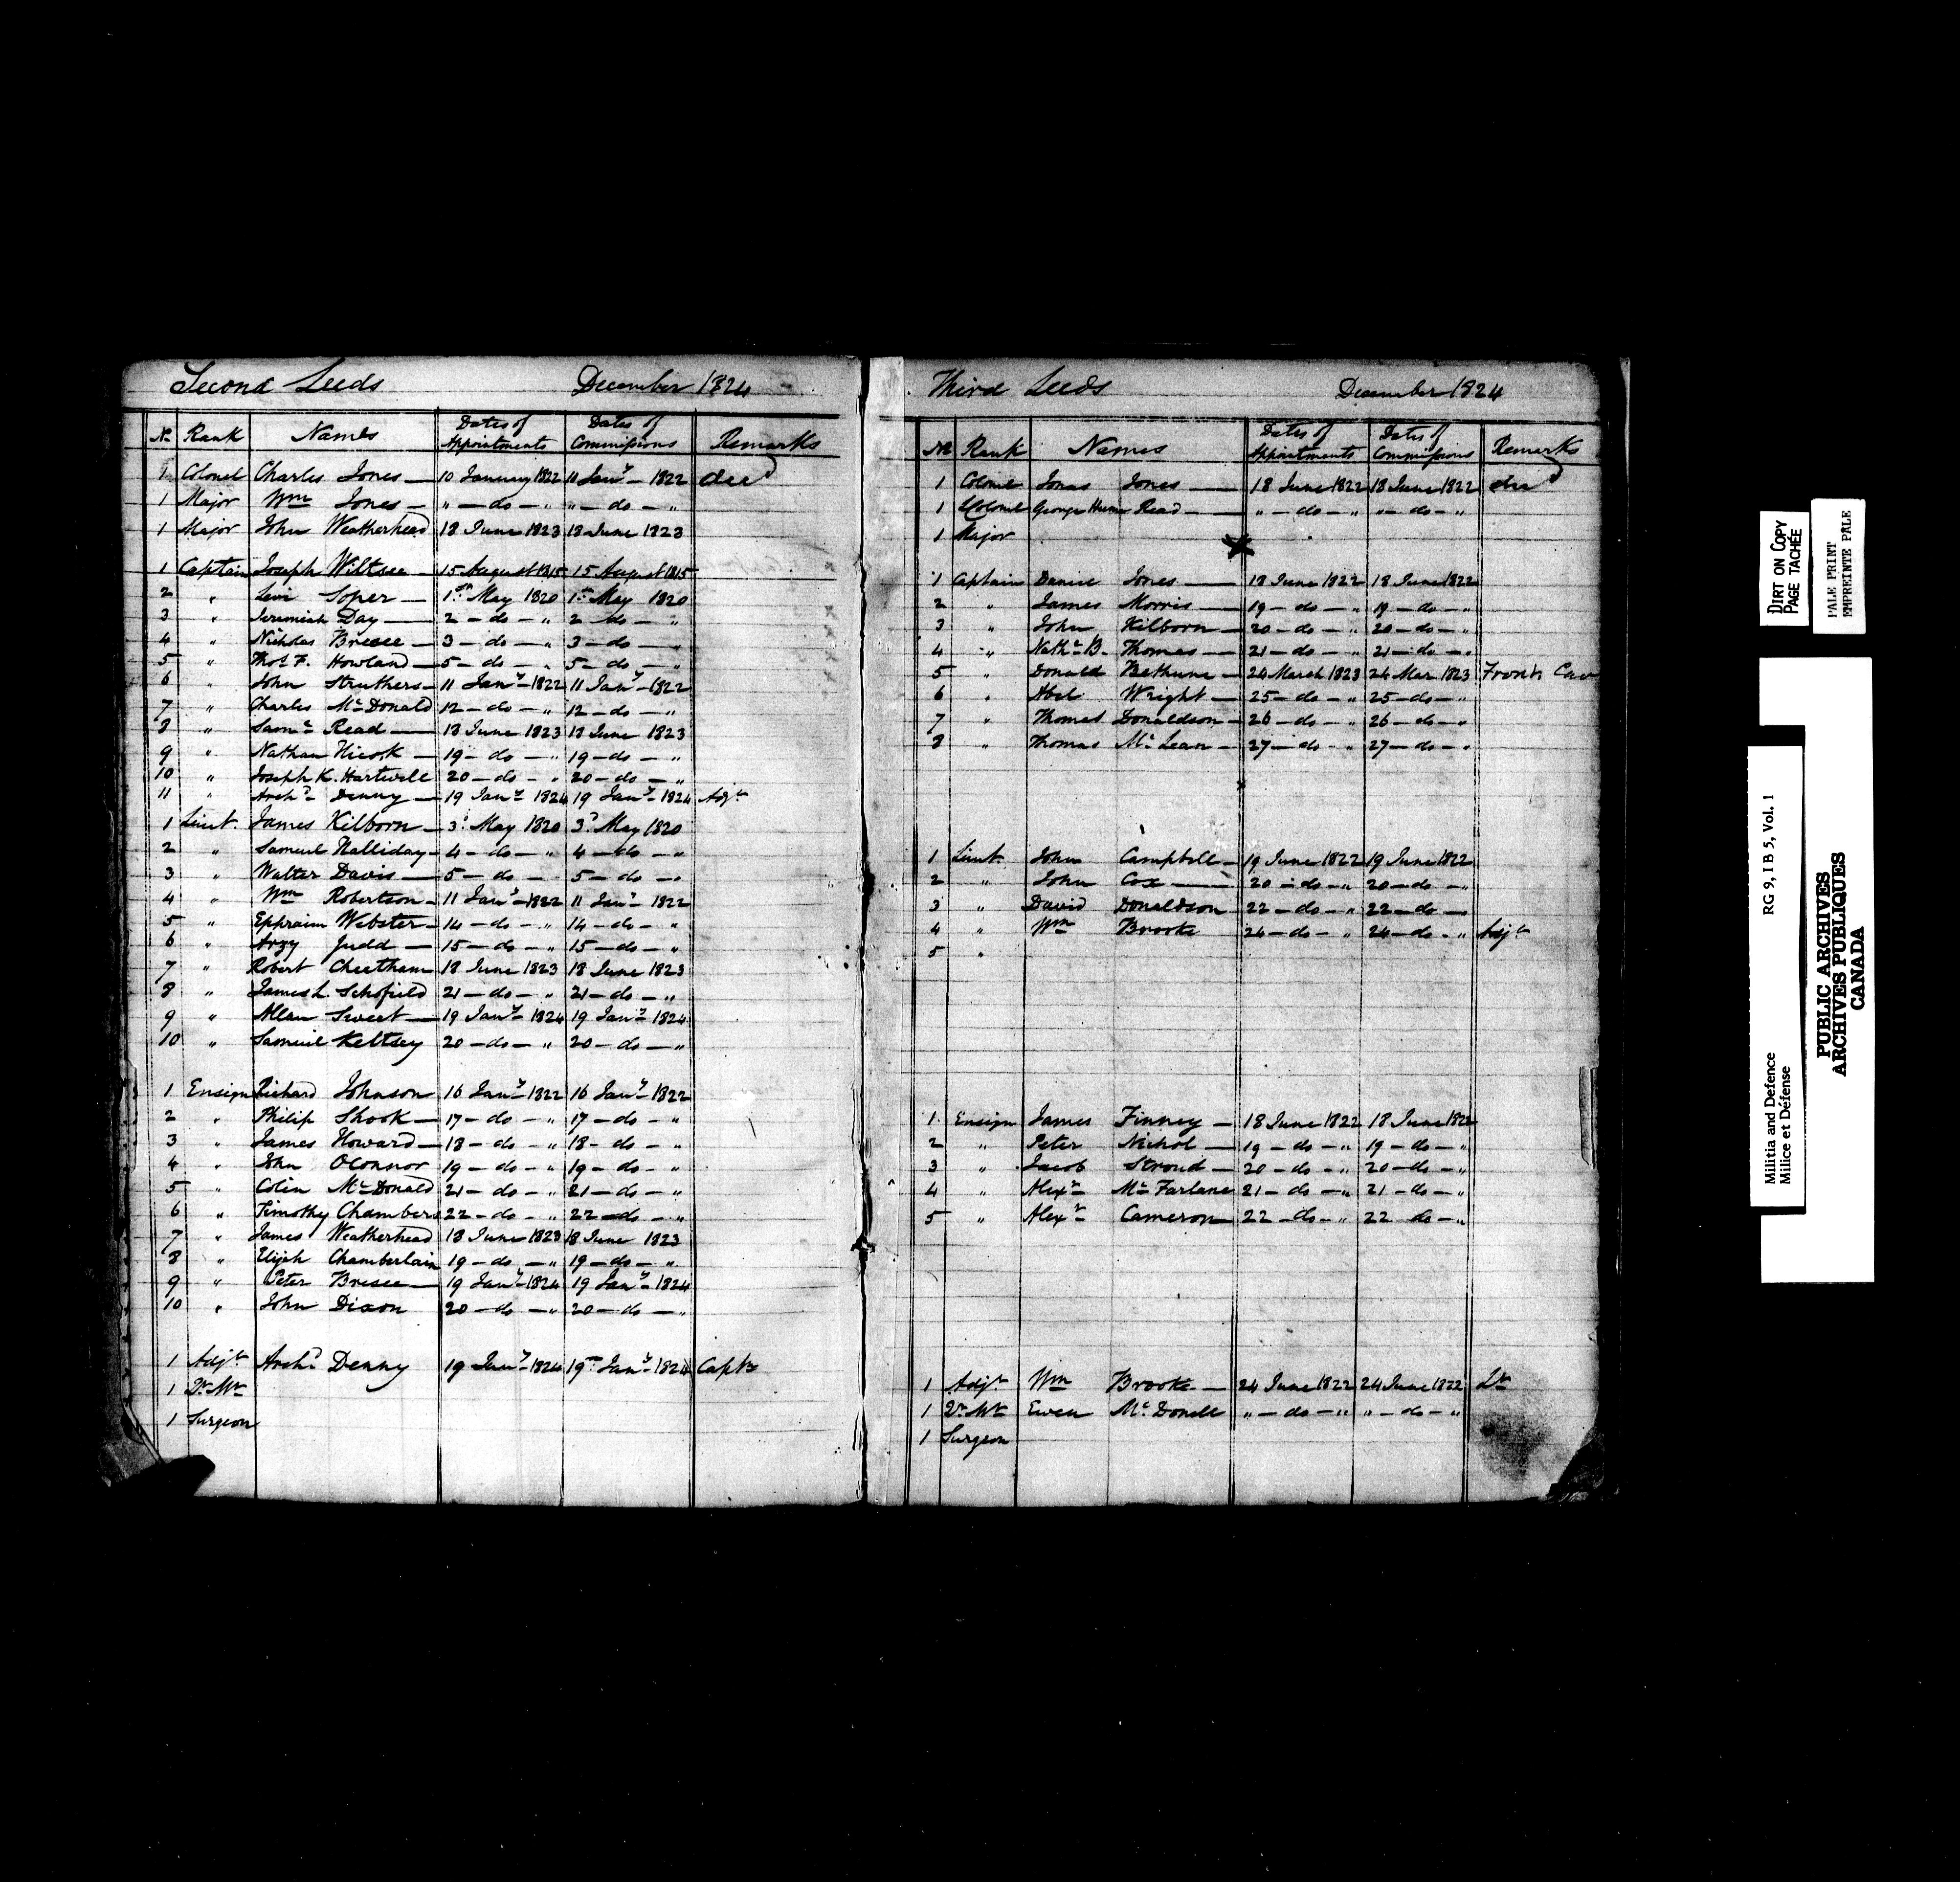 Second Leeds December 1824
No Rank Names Dates of Appointments Dates of Commissions Remarks
1 Colonel Charles Jones — 10 January 1822 11 Jany 1822
1 Major Wm Jones — " — do — " " — do — "
1 Major John Weatherhead 18 June 1823 18 June 1823
1 Captain Joseph Wiltsee — 15 August 1815 15 August 1815
2 " Levi Soper — 1st May 1820 1st May 1820
3 " Jeremiah Day — 2 — do — " 2 — do — "
4 " Nicholas Bresee — 3 — do — " 3 — do — "
5 " Thos F. Howland — 5 — do — " 5 — do — "
6 " John Struthers — 11 Jany 1822 11 Jany 1822
7 " Charles McDonald 12 — do — " 12 — do — "
8 " Saml Read — 18 June 1823 18 June 1823
9 " Nathan Hicok — 19 — do — " 19 — do — "
10 " Joseph K. Hartwell 20 — do — " 20 — do — "
11 " Archd Denny — 19 Jany 1824 19 Jany 1824 Adjt
1 Lieut. James Kilborn — 3d May 1820 3d May 1820
2 " Samuel Halliday — 4 — do — " 4 — do — "
3 " Walter Davis — 5 — do — " 5 — do — "
4 " Wm Robertson — 11 Jany 1822 11 Jany 1822
5 " Ephraim Webster — 14 — do — " 14 — do — "
6 " Arzy Judd — 15 — do — " 15 — do — "
7 " Robert Cheetham 18 June 1823 18 June 1823
8 " James L. Schofield 21 — do — " 21 — do — "
9 " Allan Sweet — 19 Jany 1824 19 Jany 1824
10 " Samuel Keltsey 20 — do — " 20 — do — "
1 Ensign Richard Johnson 16 Jany 1822 16 Jany 1822
2 " Philip Shook — 17 — do — " 17 — do — "
3 " James Howard — 18 — do — " 18 — do — "
4 " John OConnor 19 — do — " 19 — do — "
5 " Colin McDonald 21 — do — " 21 — do — "
6 " Timothy Chambers 22 — do — " 22 — do — "
7 " James Weatherhead 18 June 1823 18 June 1823
8 " Elijah Chamberlain 19 — do — " 19 — do — "
9 " Peter Bresee — 19 Jany 1824 19 Jany 1824
10 " John Dixon 20 — do — " 20 — do — "
1 Adjt Archd Denny 19 Jany 1824 19th Jany 1824 Captn
1 Qr Mr
1 Surgeon
Third Leeds December 1824
No Rank Names Dates of Appointments Dates of Commissions Remarks
1 Colonel Jonas Jones — 18 June 1822 18 June 1822
1 LColonel George Hume Read — " — do — " " — do — "
1 Major
1 Captain Daniel Jones — 18 June 1822 18 June 1822
2 " James Morris — 19 — do — " 19 — do — "
3 " John Kilborn — 20 — do — " 20 — do — "
4 " Nathl B. Thomas — 21 — do — " 21 — do — "
5 " Donald Bethune — 24 March 1823 24 Mar 1823 Fronts Cav
6 " Abel Wright — 25 — do — " 25 — do — "
7 " Thomas Donaldson — 26 — do — " 26 — do — "
8 " Thomas McLean — 27 — do — " 27 — do — "
1 Lieut. John Campbell — 19 June 1822 19 June 1822
2 " John Cox — 20 — do — " 20 — do — "
3 " David Donaldson — 22 — do — " 22 — do — "
4 " Wm Brooke 24 — do — " 24 — do — " Adjt
5 "
1 Ensign James Finney — 18 June 1822 18 June 1822
2 " Peter Nichol — 19 — do — " 19 — do — "
3 " Jacob Stroud — 20 — do — " 20 — do — "
4 " Alexr McFarlane 21 — do — " 21 — do — "
5 " Alexr Cameron — 22 — do — " 22 — do — "
1 Adjt Wm Brooke — 24 June 1822 24 June 1822 Lt
1 Qr Mr Ewen McDonell " — do — " " — do — "
1 Surgeon
DIRT ON COPY
PAGE TACHÉE
PALE PRINT
EMPREINTE PÂLE
Militia and Defence RG 9, I B 5, Vol. 1
Milice et Défense
PUBLIC ARCHIVES
ARCHIVES PUBLIQUES
CANADA